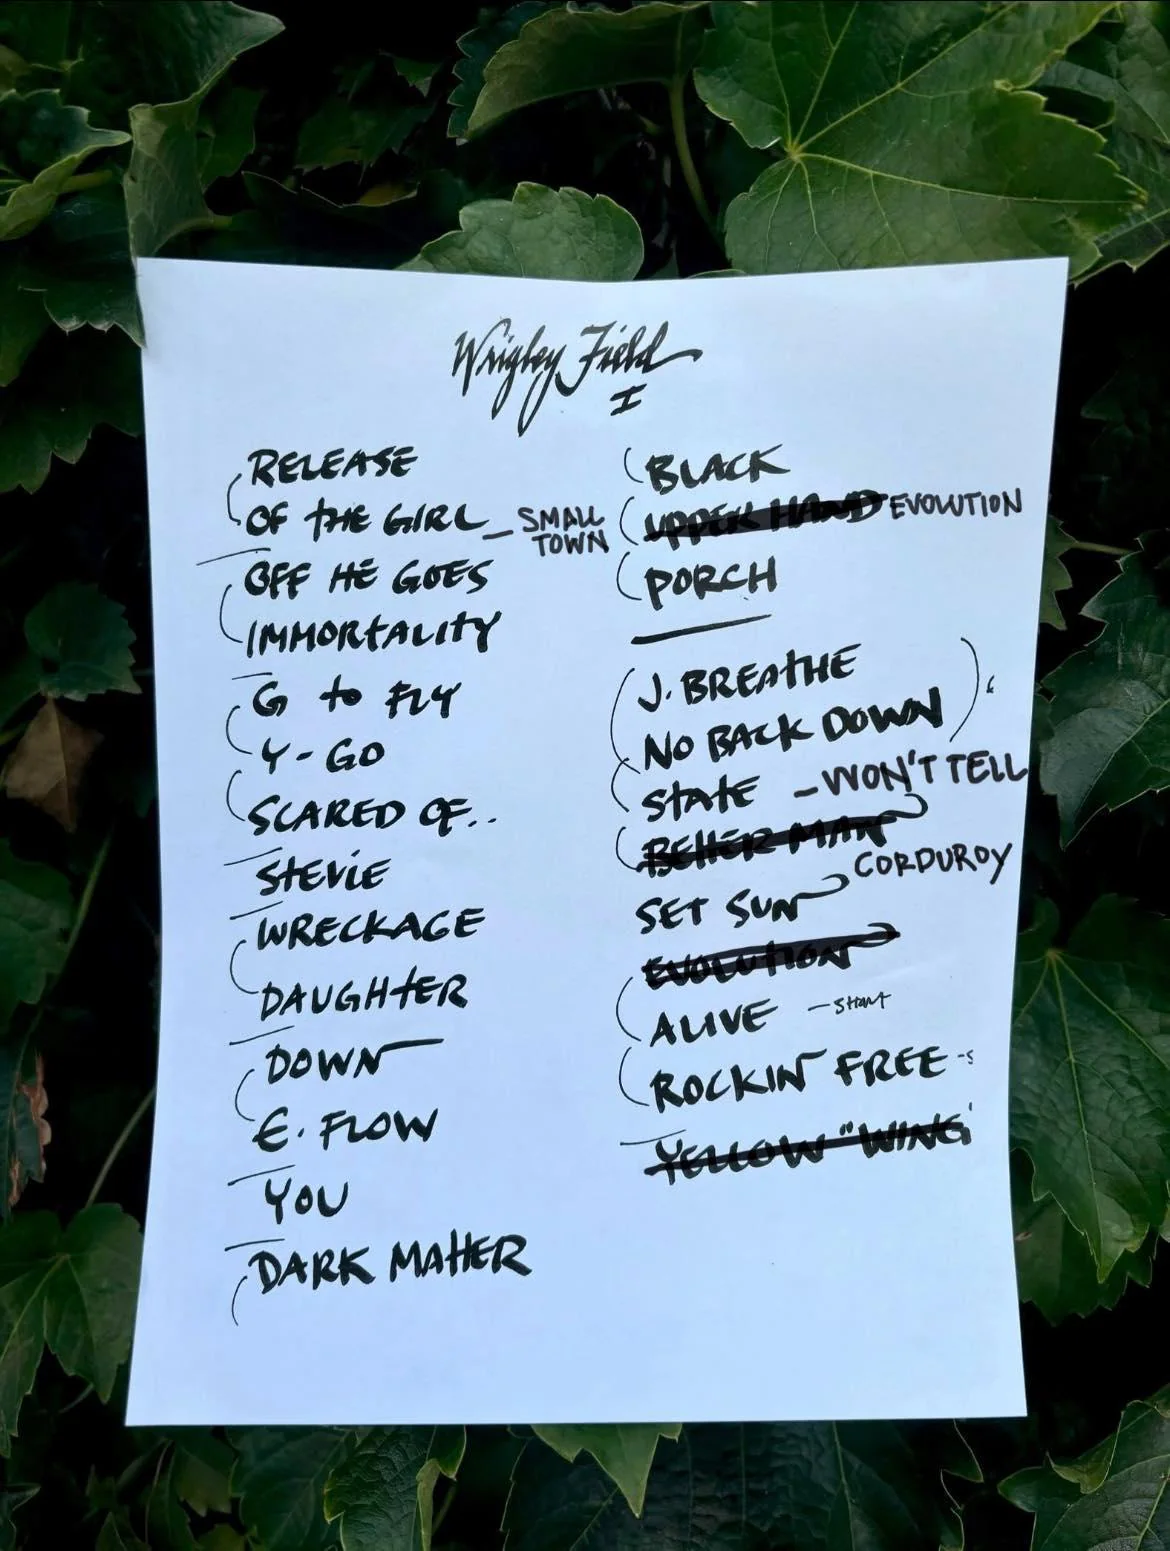 Wrigley Field
I
RELEASE
OF THE GIRL — SMALL TOWN
OFF HE GOES
IMMORTALITY
G to FLY
Y-GO
SCARED OF..
STEVIE
WRECKAGE
DAUGHTER
DOWN
E. FLOW
YOU
DARK MATTER
BLACK
UPPER HAND EVOLUTION
PORCH
J. BREATHE
NO BACK DOWN
STATE — WON'T TELL
BETTER MAN
CORDUROY
SET SUN
EVOLUTION
ALIVE — START
ROCKIN FREE -S
YELLOW "WING"